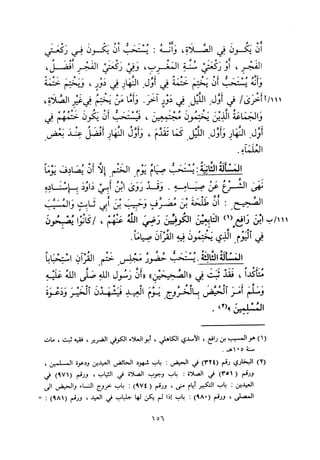 أَنْ يَكُونَ فِي الصَّلَاةِ، وَأَنَّهُ : يُسْتَحَبُّ أَنْ يَكُونَ فِي رَكْعَتَيْ
الفَجْرِ ، أَوْ رَكْعَتَيْ سُنَّةِ المَغْرِبِ، وَفِي رَكْعَتَيِ الفَجْرِ أَفْضَلُ ،
وَأَنَّهُ يُسْتَحَبُّ أَنْ يَخْتِمَ خَتْمَةً فِي أَوَّلِ النَّهَارِ فِي دَوْرٍ ، وَيَخْتِمَ خَتْمَةً
١١١/أ أُخْرَى/ فِي أَوَّلِ اللَّيْلِ فِي دَوْرٍ آخَرَ. وَأَمَّا مَنْ يَخْتِمُ فِي غَيْرِ الصَّلَاةِ،
وَالجَمَاعَةُ الَّذِينَ يَخْتِمُونَ مُجْتَمِعِينَ، فَيُسْتَحَبُّ أَنْ يَكُونَ خَتْمُهُمْ فِي
أَوَّلِ النَّهَارِ وَأَوَّلِ اللَّيْلِ كَمَا تَقَدَّمَ ، وَأَوَّلُ النَّهَارِ أَفْضَلُ عِنْدَ بَعْضِ
العُلَمَاءِ.
المَسْأَلَةُ الثَّانِيَةُ: يُسْتَحَبُّ صِيَامُ يَوْمِ الخَتْمِ إِلَّا أَنْ يُصَادِفَ يَوْماً
نَهَى الشَّرْعُ عَنْ صِيَامِهِ . وَقَدْ رَوَى ابْنُ أَبِي دَاوُدَ بِإِسْنَادِهِ
الصَّحِيحِ : أَنَّ طَلْحَةَ بْنَ مُصَرِّفٍ وَحَبِيبَ بْنَ أَبِي ثَابِتٍ وَالمُسَيَّبَ
١١١/ب ابْنَ رَافِعٍ (١) التَّابِعِينَ الكُوفِيِّينَ رَضِيَ اللَّهُ عَنْهُمْ ، /كَانُوا يُصْبِحُونَ
فِي الْيَوْمِ الَّذِي يَخْتِمُونَ فِيهِ القُرْآنَ صِيَاماً.
المَسْأَلَةُ الثَّالِثَةُ. يُسْتَحَبُّ حُضُورُ مَجْلِسِ خَتْمِ القُرْآنِ اسْتِحْبَاباً
مُتَأَكِّداً ، فَقَدْ ثَبَتَ فِي «الصَّحِيحَيْنِ» «أَنَّ رَسُولَ اللهِ صَلَّى اللهُ عَلَيْهِ
وَسَلَّمَ أَمَرَ الحُيَّضَ بِالخُرُوجِ يَوْمَ العِيدِ فَيَشْهَدْنَ الخَيْرَ وَدَعْوَةَ
المُسْلِمِينَ»(٢).
(١) هو المسيب بن رافع ، الأسدي الكاهلي ، أبو العلاء الكوفي الضرير ، فقيه ثبت ، مات
سنة ١٠٥هـ .
(٢) البخاري رقم (٣٢٤) في الحيض : باب شهود الحائض العيدين ودعوة المسلمين ،
ورقم (٣٥١) في الصلاة : باب وجوب الصلاة في الثياب ، ورقم (٩٧١) في
العيدين : باب التكبير أيام منى ، ورقم (٩٧٤) : باب خروج النساء والحيض إلى
المصلى ، ورقم (٩٨٠) : باب إذا لم يكن لها جلباب في العيد ، ورقم (٩٨١) : =
١٥٦